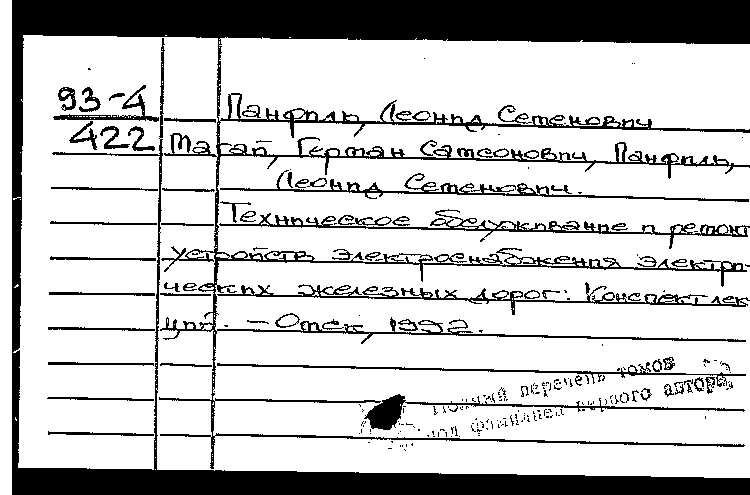 93-4
422
Панфиль, Леонид Семенович
Магай, Герман Самсонович, Панфиль,
Леонид Семенович.
Техническое обслуживание и ремонт
устройств электроснабжения электри-
ческих железных дорог: Конспект лек-
ций. – Омск, 1992.
Полный перечень томов
под фамилией первого автора